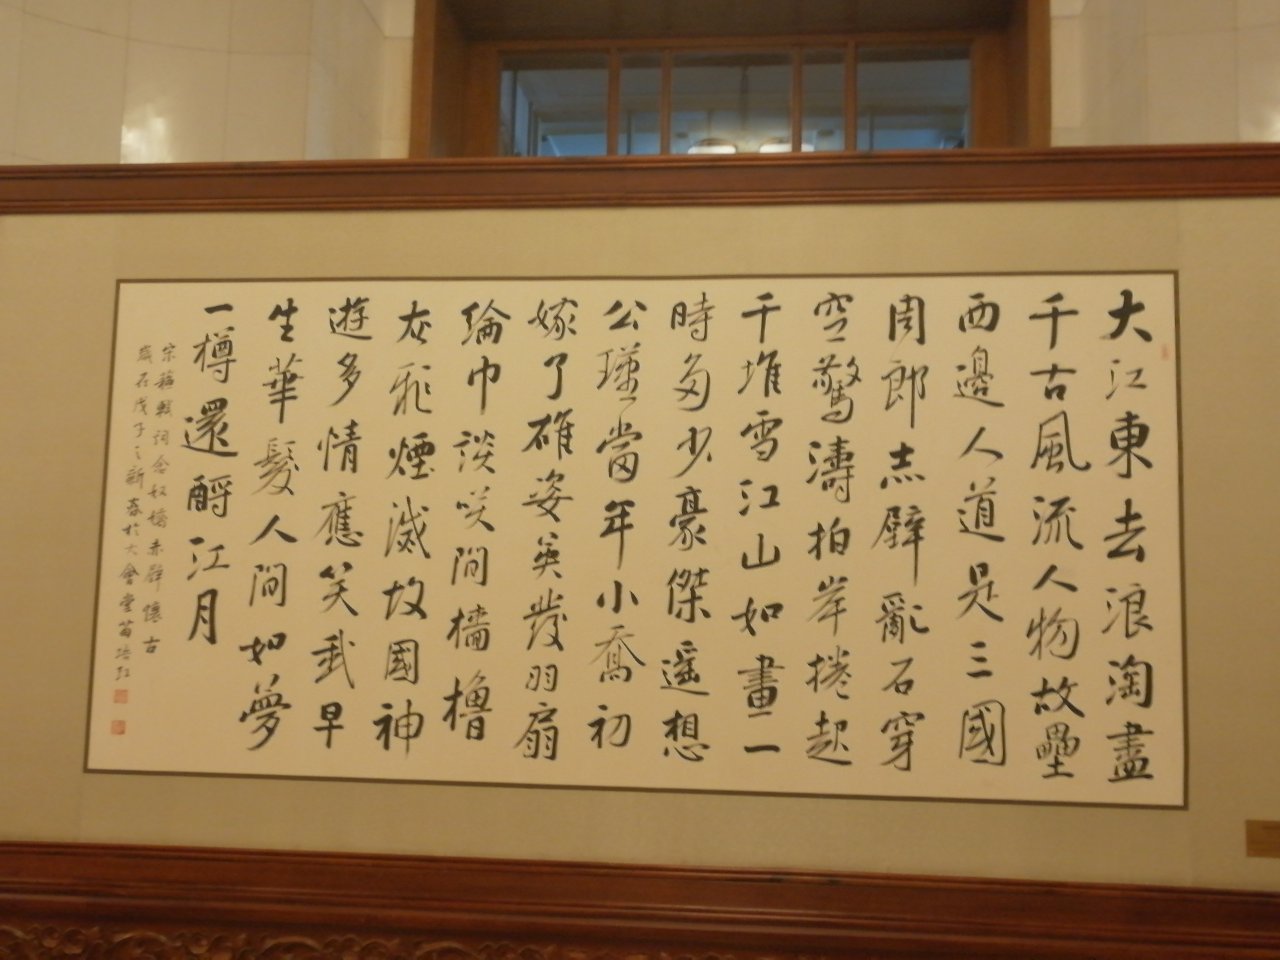 大江東去浪淘盡
千古風流人物故壘
西邊人道是三國
周郎赤壁亂石穿
空驚濤拍岸捲起
千堆雪江山如畫一
時多少豪傑遙想
公瑾當年小喬初
嫁了雄姿英發羽扇
綸巾談笑間檣櫓
灰飛煙滅故國神
遊多情應笑我早
生華髮人間如夢
一樽還酹江月
宋蘇軾詞念奴嬌赤壁懷古
歲在戊子之新春於大會堂苗培紅